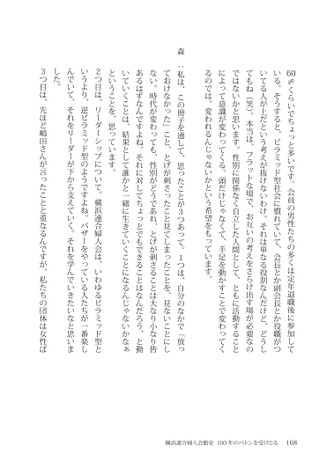 60％くらいでちょっと多いです。会員の男性たちの多くは定年退職後に参加して
いる。そうすると、ピラミッド型社会に慣れていて、会長とか副会長とか役職がつ
いてる人が上だという考えが抜けないわけ。それは単なる役割なんだけど、どうし
てもね（笑）。本当は、フラットな場で、お互いの考えをさらけ出す場が必要なの
ではないかと思います。性別に関係なく自立した人間として、ともに活動すること
によって意識が変わってくる。頭だけじゃなくて、手足を動かすことで変わってく
るのでは。変われるんじゃないかという希望をもっています。
森　：私は、この冊子を通じて、思ったことが３つあって。１つは、自分のなかで「放っ
ておけなかった」こと、とげが刺さったことを見てしまったことを、見ないことにし
ない。時代が変わっても、性別がどうであれ、とげが刺さることは大なり小なり皆
あるはずなんですよね。それに対してちょっとでもできることはなんだろう、と動
いていくことは、結果として誰かと一緒に生きていくことになるんじゃないかなぁ
ということを、思っています。
２つ目は、リーダーシップについて。横浜連合婦人会は、いわゆるピラミッド型と
いうより、逆ピラミッド型のようですよね。バザーをやっている人たちが一番楽し
んでいて、それをリーダーが下から支えていく。それを学んでいきたいなと思いま
した。
３つ目は、先ほど嶋田さんが言ったことと重なるんですが、私たちの団体は女性ば
横浜連合婦人会館史　100年のバトンを受けとる　168